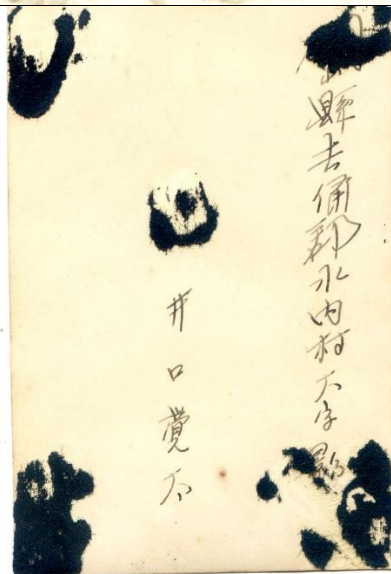 岡山縣吉備郡水内村大字影
井口覚太